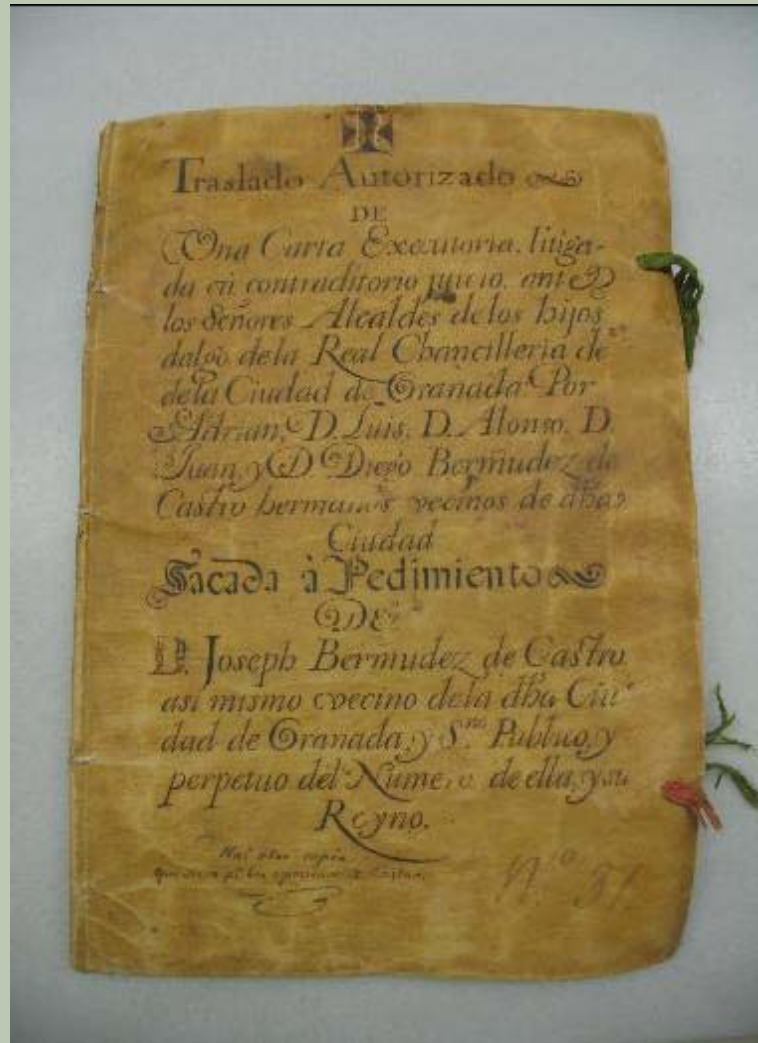 Traslado Autorizado
DE
Una Carta Executoria, litiga-
da en contraditorio juicio, ante
los Señores Alcaldes de los hijos
dalgo dela Real Chancilleria de
dela Ciudad de Granada. Por
Adrian, D. Luis, D. Alonso, D.
Juan, y D. Diego Bermudez de
Castro hermanos vecinos de dha
Ciudad
Sacada à Pedimiento
DE
D. Joseph Bermudez de Castro
asi mismo vecino dela dha Ciu
dad de Granada, y S.no Publico, y
perpetuo del Numero de ella, y su
Reyno.
Hai otra copia
que
N.º 31